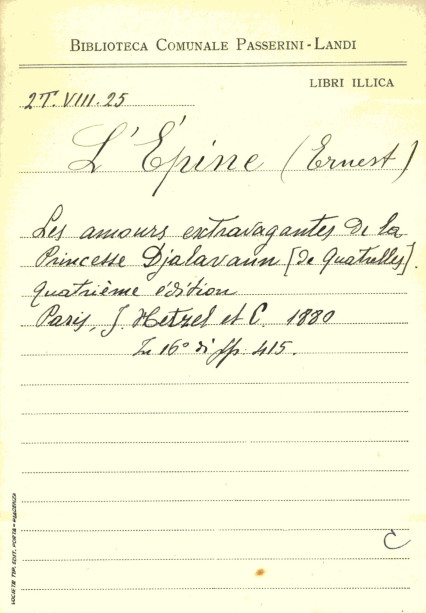 BIBLIOTECA COMUNALE PASSERINI-LANDI
LIBRI ILLICA
2T. VIII. 25
L'Épine (Ernest)
Les amours extravagantes de la
Princesse Djalavann [de Quatrelles].
Quatrième édition
Paris, J. Hetzel et C. 1880
In 16° di pp. 415.
C
SOCIETÀ TIP. EDIT. PORTA - PIACENZA